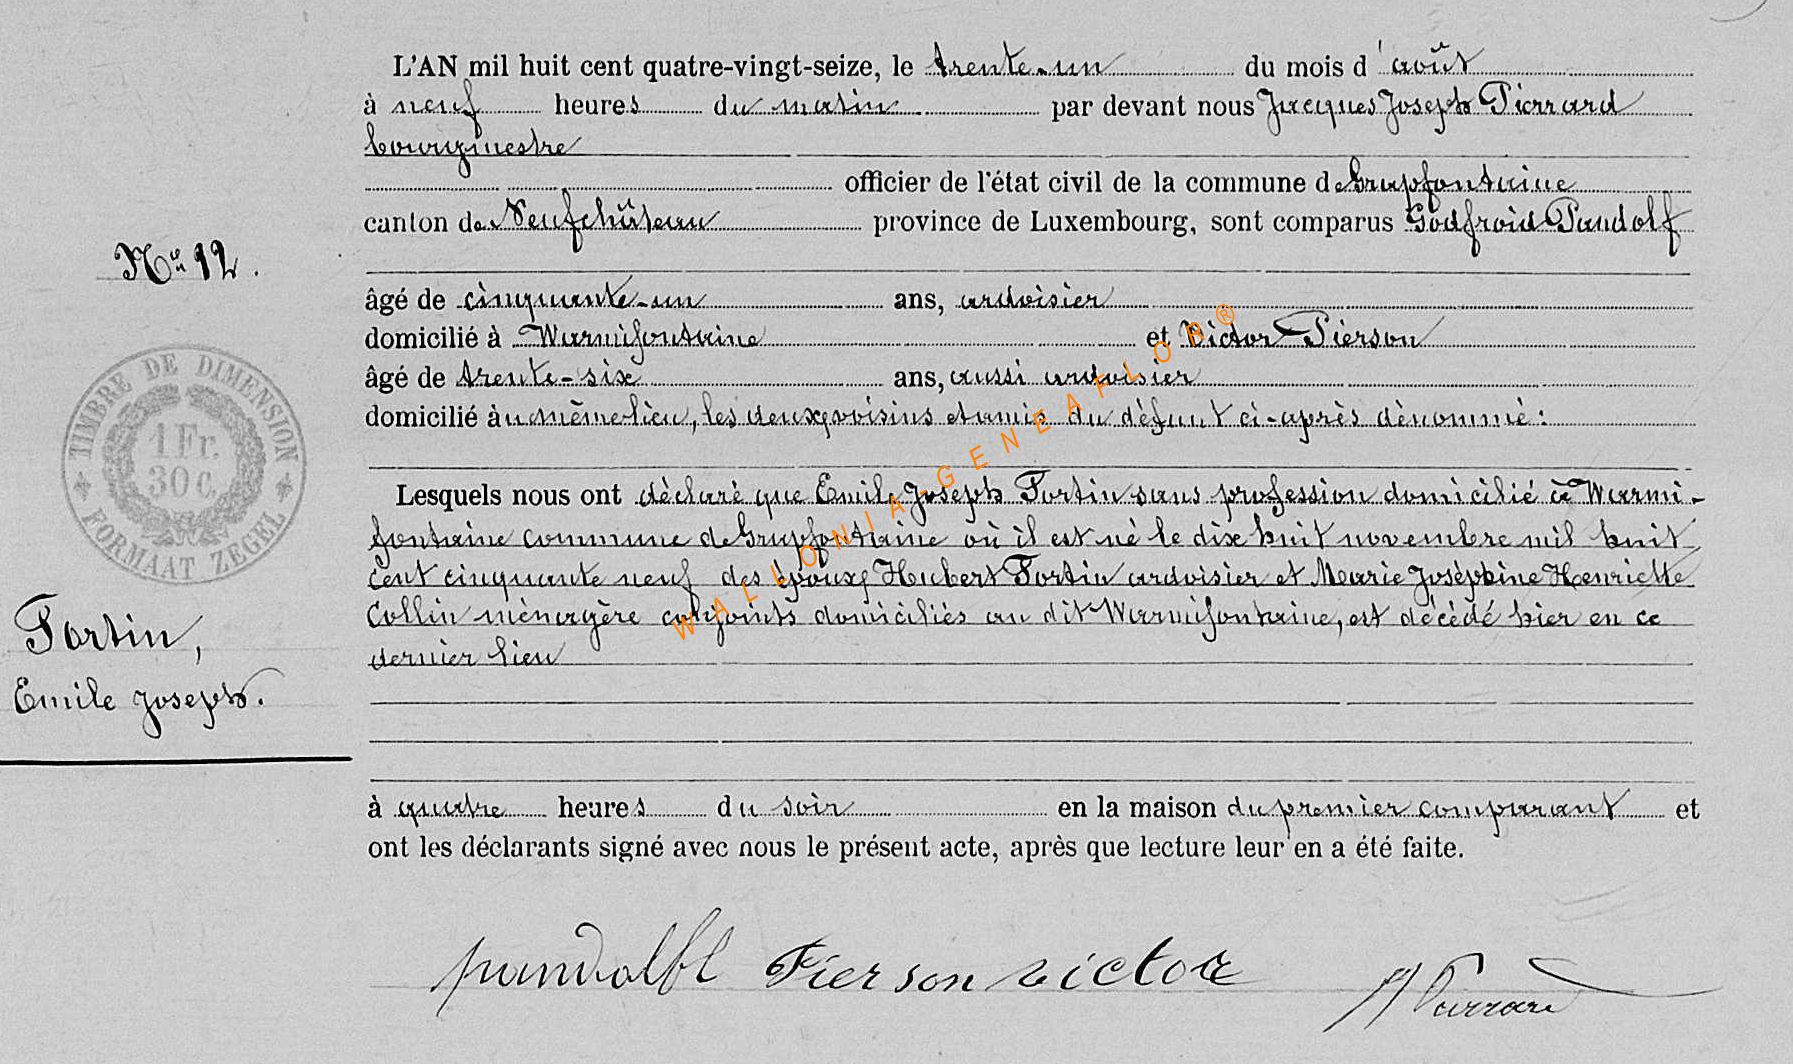 L'AN mil huit cent quatre-vingt-seize, le trente-un du mois d'août
à neuf heures du matin par devant nous Jacques Joseph Pierrard
bourgmestre
officier de l'état civil de la commune de Grapfontaine
canton de Neufchâteau province de Luxembourg, sont comparus Godfroid Pandolf
No 12.
âgé de cinquante-un ans, ardoisier
domicilié à Warmifontaine et Victor Pierson
âgé de trente-six ans, aussi ardoisier
domicilié au même lieu, les deux voisins et amis du défunt ci-après dénommé :
TIMBRE DE DIMENSION
1 Fr.
30 c.
FORMAAT ZEGEL
Lesquels nous ont déclaré que Emile Joseph Fortin sans profession domicilié à Warmi-
fontaine commune de Grapfontaine où il est né le dix huit novembre mil huit
cent cinquante neuf des époux Hubert Fortin ardoisier et Marie Joséphine Henriette
Collin ménagère conjoints domiciliés au dit Warmifontaine, est décédé hier en ce
dernier lieu
Fortin,
Emile Joseph.
à quatre heures du soir en la maison du premier comparant et
ont les déclarants signé avec nous le présent acte, après que lecture leur en a été faite.
pandolf Pierson victor Pierrard
WALLONIA-GENEAFLOR®